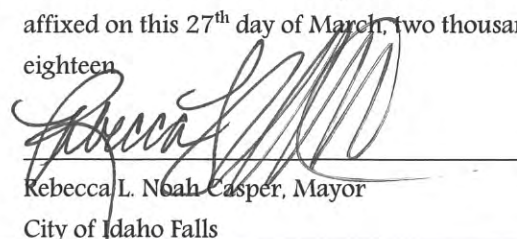 affixed on this 27th day of March, two thousan
eighteen
Rebecca
Rebecca L. Noah Casper, Mayor
City of Idaho Falls